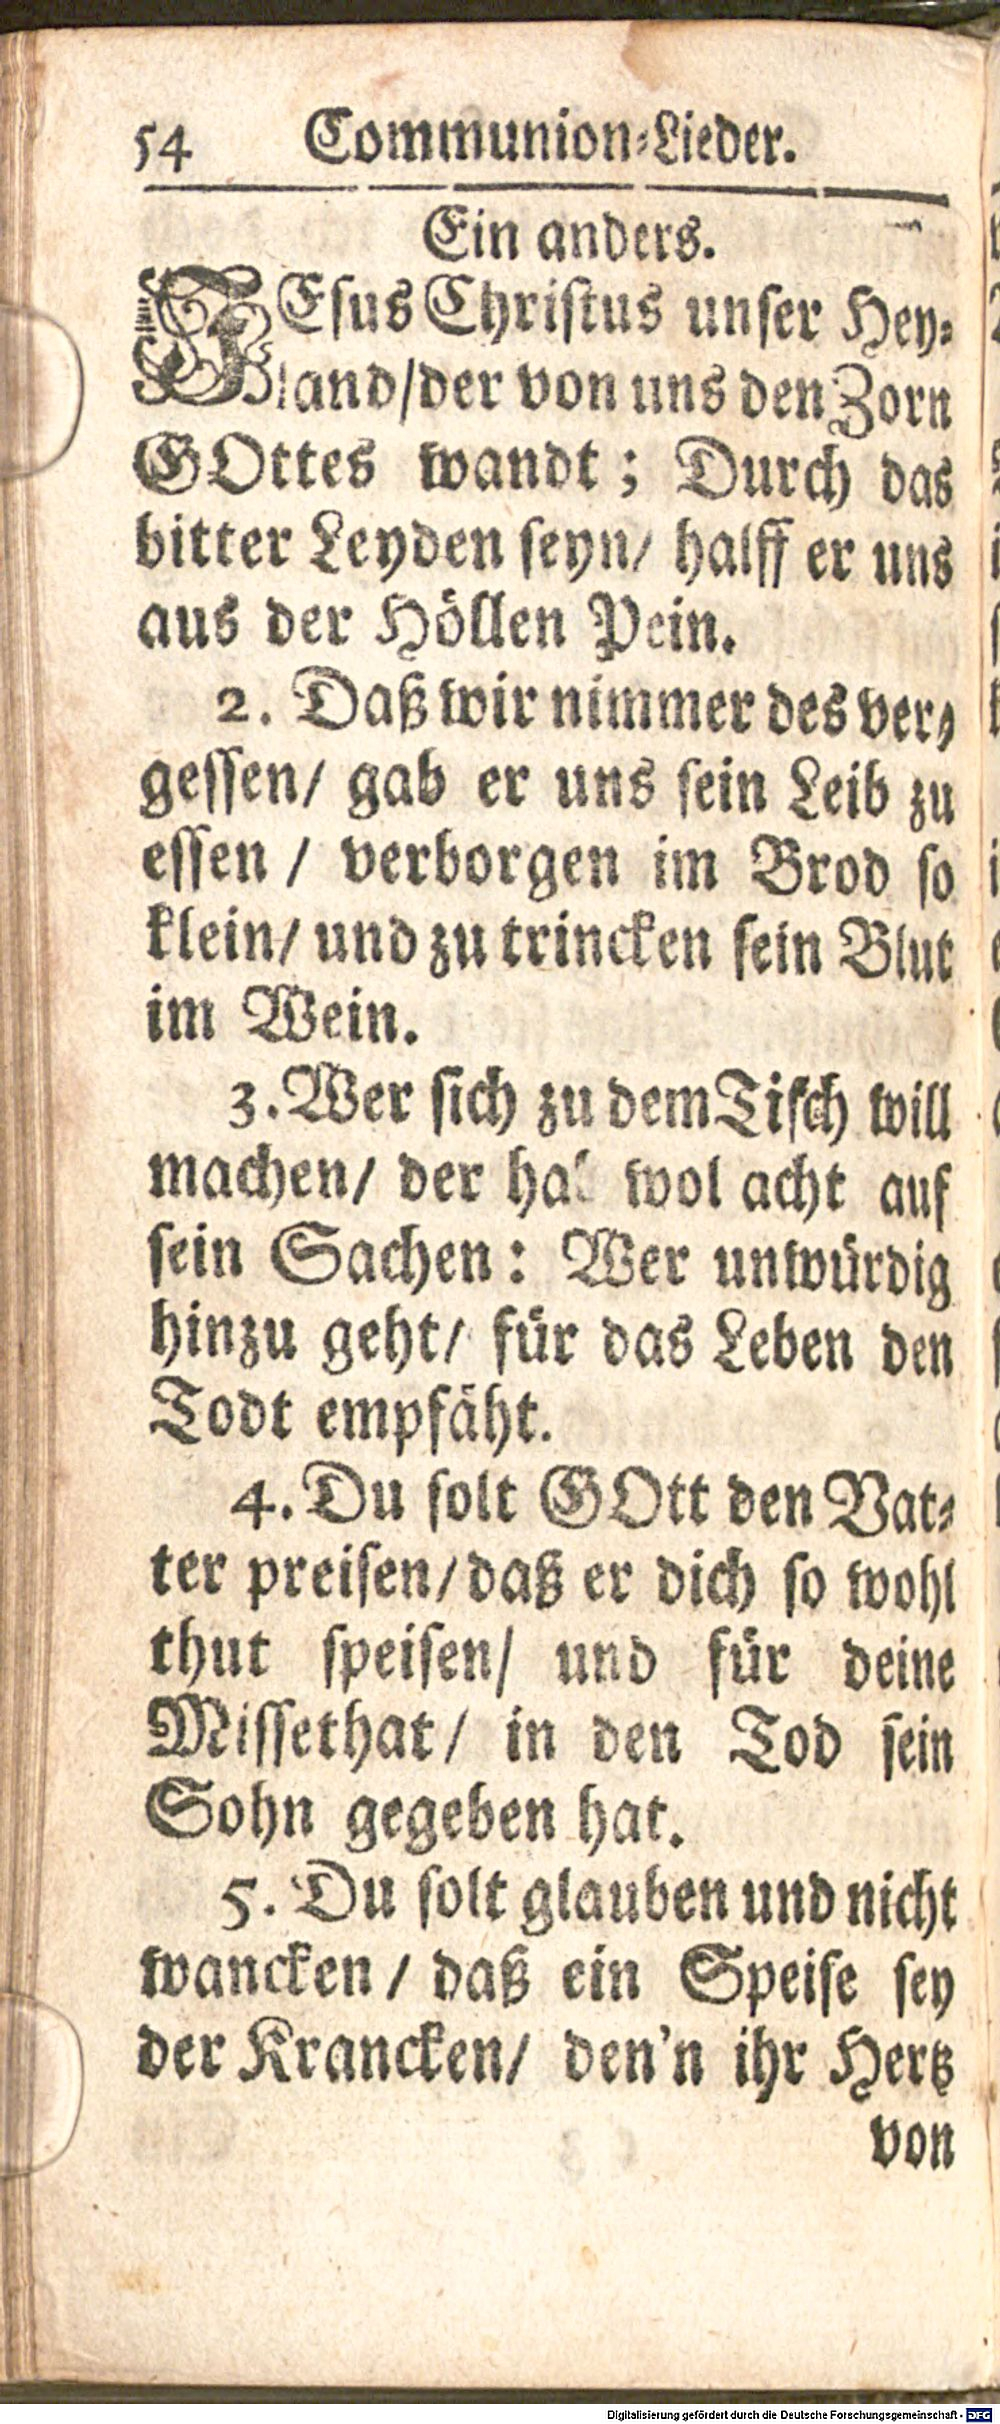 54 Communion-Lieder.
Ein anders.
JEsus Christus unser Hey-
land/der von uns den Zorn
GOttes wandt; Durch das
bitter Leyden seyn/ halff er uns
aus der Höllen Pein.
2. Daß wir nimmer des ver-
gessen/ gab er uns sein Leib zu
essen / verborgen im Brod so
klein/ und zu trincken sein Blut
im Wein.
3. Wer sich zu dem Tisch will
machen/ der wol acht auf
sein Sachen: Wer unwürdig
hinzu geht/ für das Leben den
Todt empfäht.
4. Du solt GOtt den Vat-
ter preisen/daß er dich so wohl
thut speisen/ und für deine
Missethat/ in den Tod sein
Sohn gegeben hat.
5. Du solt glauben und nicht
wancken / daß ein Speise sey
der Krancken/ den'n ihr Hertz
von
Digitalisierung gefördert durch die Deutsche Forschungsgemeinschaft - DFG